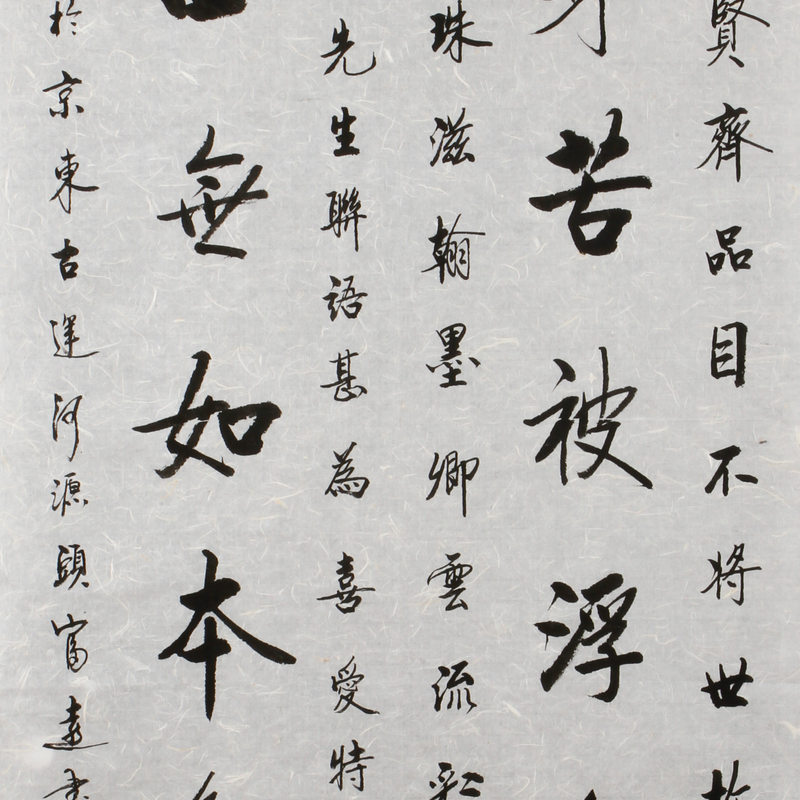 賢齊品目不將世
苦被浮
珠滋翰墨卿雲流彩
先生聯語甚為喜愛特
無如本
於京東古運河源頭富達書